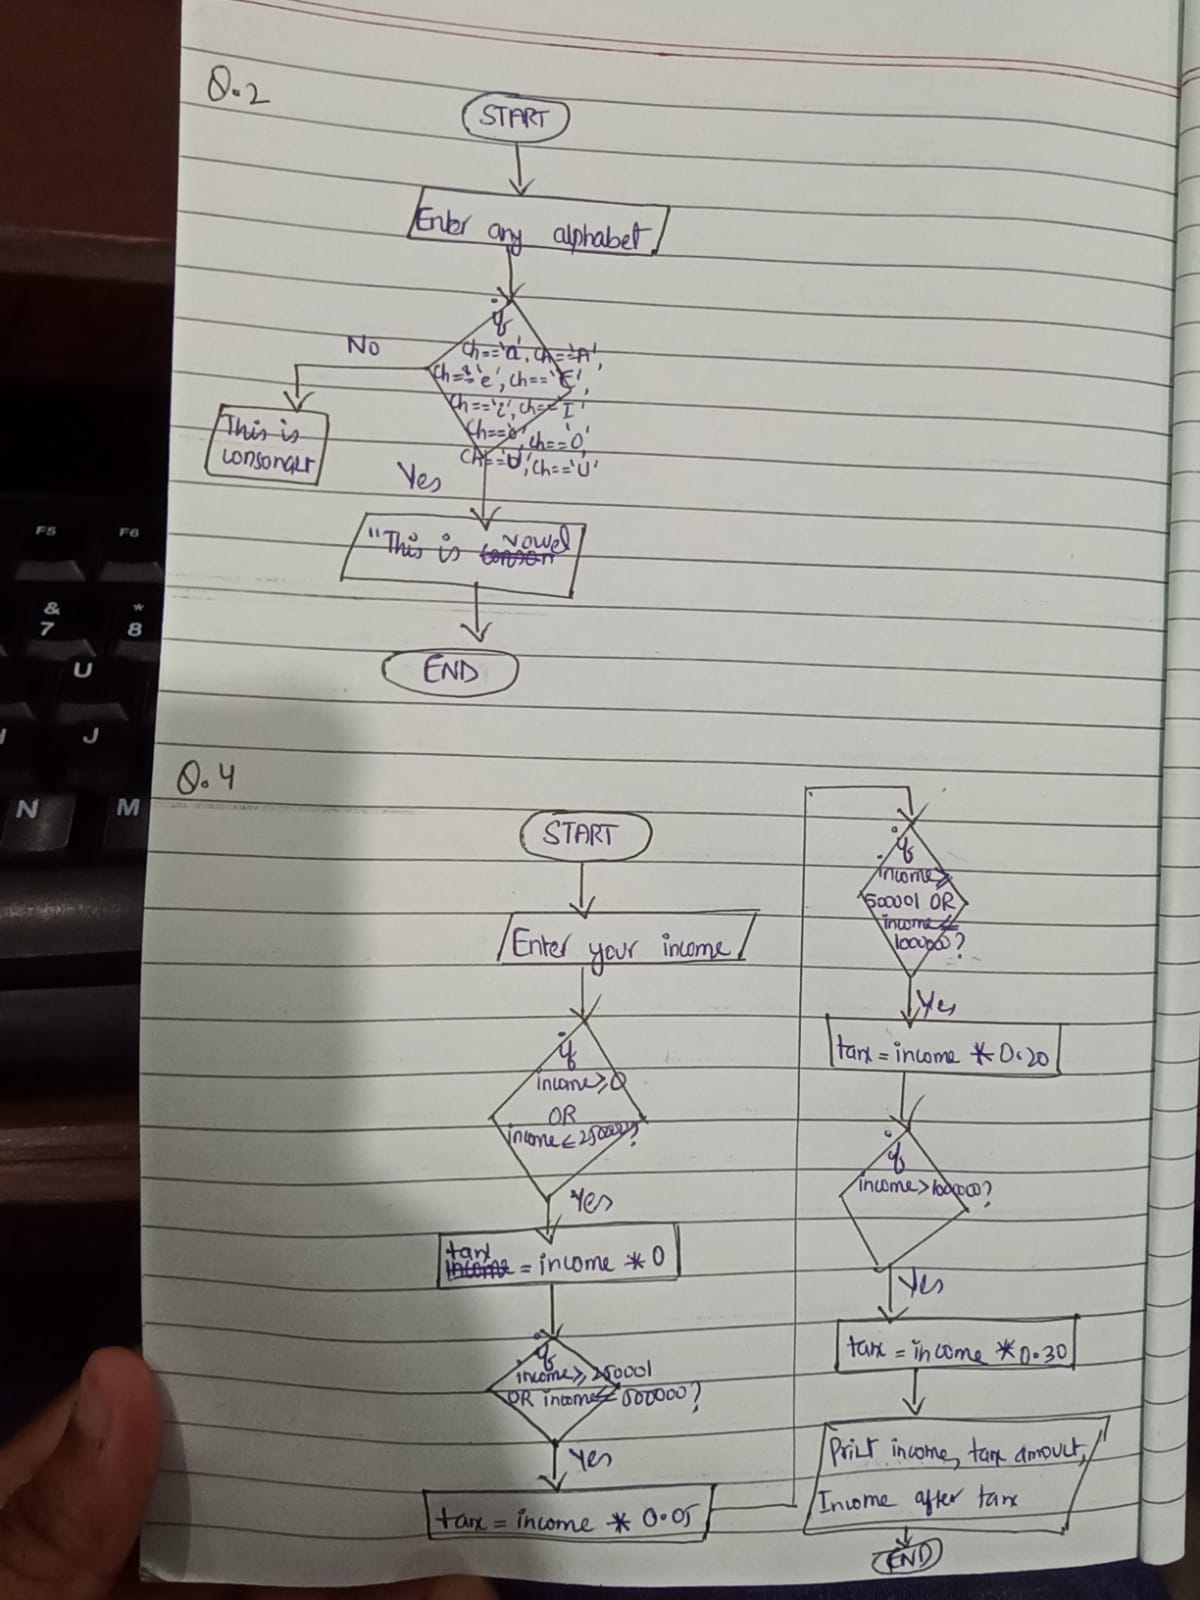 Q.2
START
Enter any alphabet
if
No
ch=='a', ch=='A',
ch=='e', ch=='E',
ch=='i', ch==I'
ch=='o', ch=='O',
ch=='U', ch=='U'
This is
consonant
Yes
"This is vowel
END
Q.4
START
Enter your income
if
income≥0
OR
income≤250000?
Yes
tax
= income * 0
if
income≥250001
OR income≤500000?
Yes
tax = income * 0.05
if
income≥
500001 OR
income≤
1000000?
Yes
tax = income * 0.20
if
income>1000000?
Yes
tax = income * 0.30
Print income, tax amount,
Income after tax
END
F5
F6
&
7
*
8
U
J
N
M